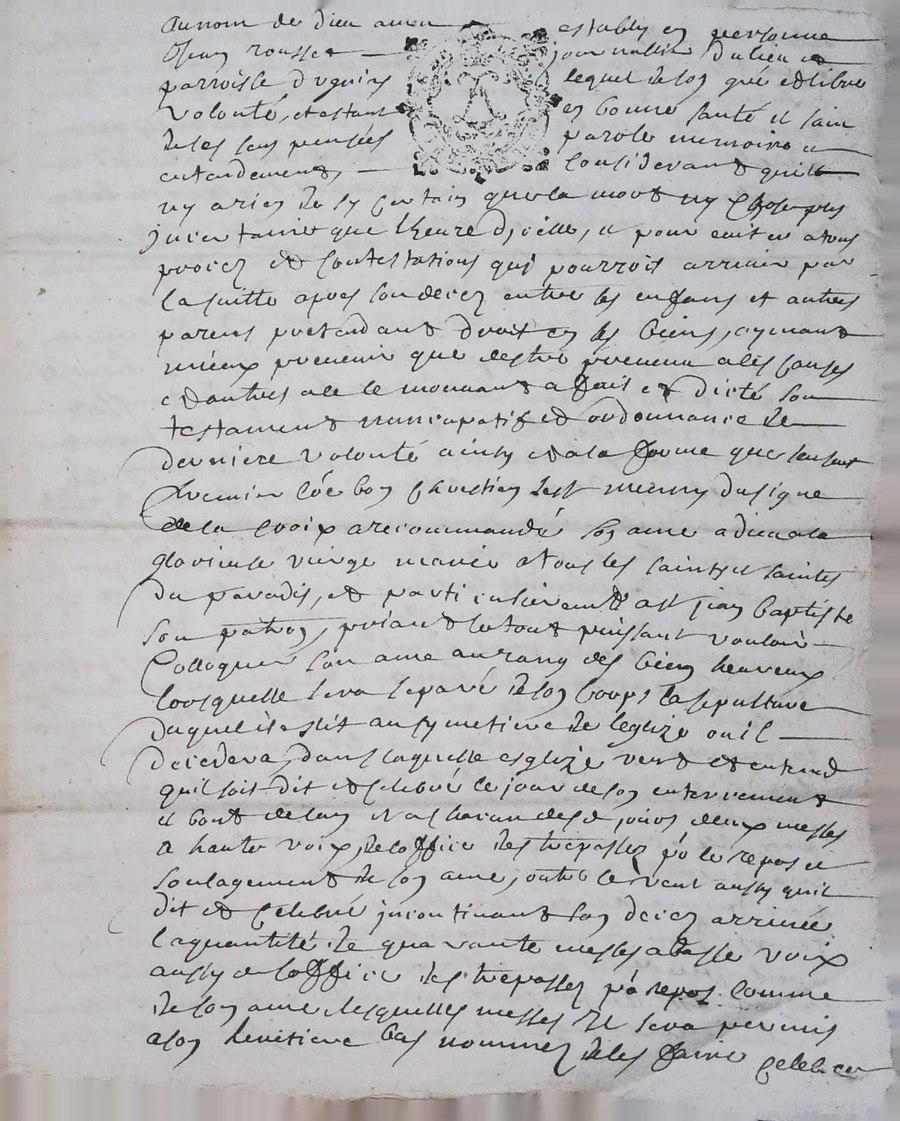 Au nom de dieu amen establÿ en personne
Jean rousset journallier du lieu et
parroisse duquins lequel de son gré et libre
volonté, et estant en bonne santé et sain
de ses sens pensées parolle memoire et
entendement, Considerant quil
ny a rien de sy certain que la mort ny chose plus
jncertaine que lheure dicelle, et pour euiter a tous
procez et Contestations qui pourrois arriuer par
la suitte apres son decez entre ses enfans et autres
parens pretendant droit en ses biens, aymant
mieux preuenir que destre preuenu a ses causes
et autres a ce le mouuant a fait et dicté son
testament nuncupatif et ordonnance de
derniere volonté ainsy et a la forme que sensuit
Premier Coe bon Chrestien sest muny du signe
de la Croix a recommandé son ame a dieu a la
glorieuse vierge marie a tous les saints et saintes
du paradis, et particulierement a st jean baptiste
son patron, priant le tout puissant vouloir
Colloquer son ame au rang des bien heureux
lorsquelle sera separé de son Corps la sepulture
duquel il eslit au symetiere de leglize ou il
decedera, dans laquelle esglize veut et entend
quil soit dit et celebré le jour de son enterrement
et bout de lan a chacun desd jours deux messes
a haute voix, de loffice des trepassez pr le repos et
soulagement de son ame, outre ce veut aussy quil
dit et Celebré jncontinant son decez arriuée
la quantité de quarante messes a basse voix
aussy de loffice des trepassez pr repos comme
de son ame lesquelles messes il sera permis
a son heretiere bas nommez de les faire celebrer